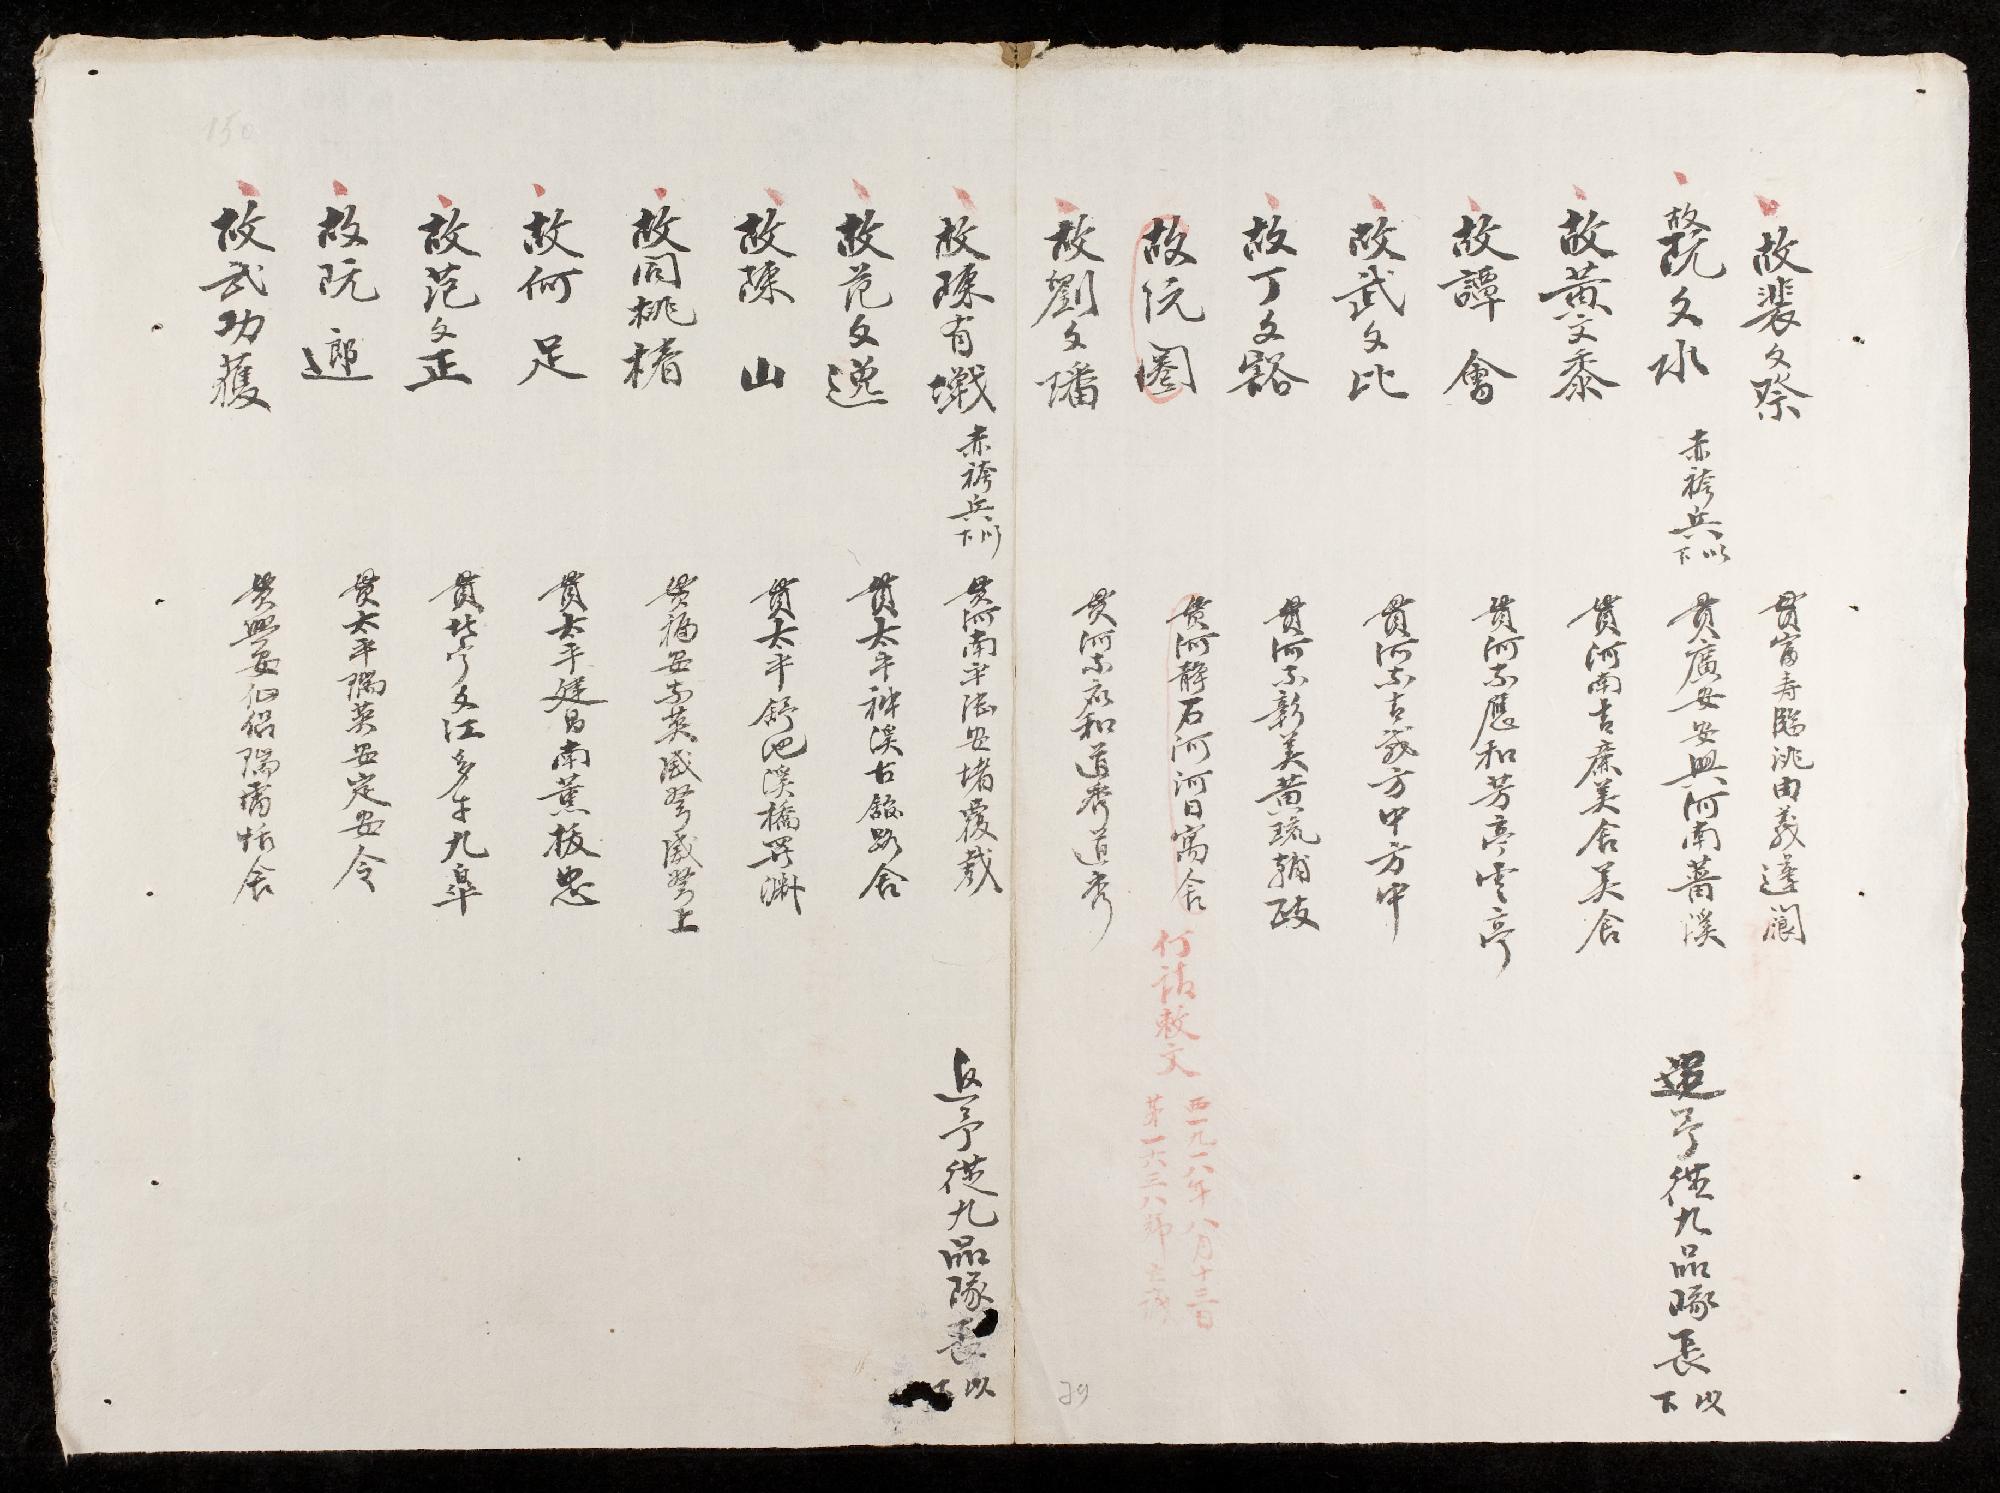 故裴文祭
貫富壽臨洮由義蓬瀾
故阮文水 赤袴兵以下
貫廣安安興河南薔溪
還予從九品隊長以下
故黃文黍
貫河南吉廉美舍美舍
故譚會
貫河東應和芳亭雲亭
故武文比
貫河東古我方中方中
故丁文豁
貫河東彰美黃琉輔政
故阮圈
貫河靜石河河日寓舍
付諸敕文
西一九一八年八月十三日
第一六三八號
故劉文璠
貫河東應和道秀道秀
故陳有戰 赤袴兵以下
貫河南平陸安堵覆哉
追予從九品隊長以下
故范文選
貫太平神溪古館路舍
故陳山
貫太平舒池溪橋
故同桃椿
貫福安東英盛弩盛弩上
故何足
貫太平建昌南薰扳忠
故范文正
貫北寧文江多牛九皋
故阮
貫太平瑞英安定安令
故武功獲
貫興安仙侶瑞恬舍
150